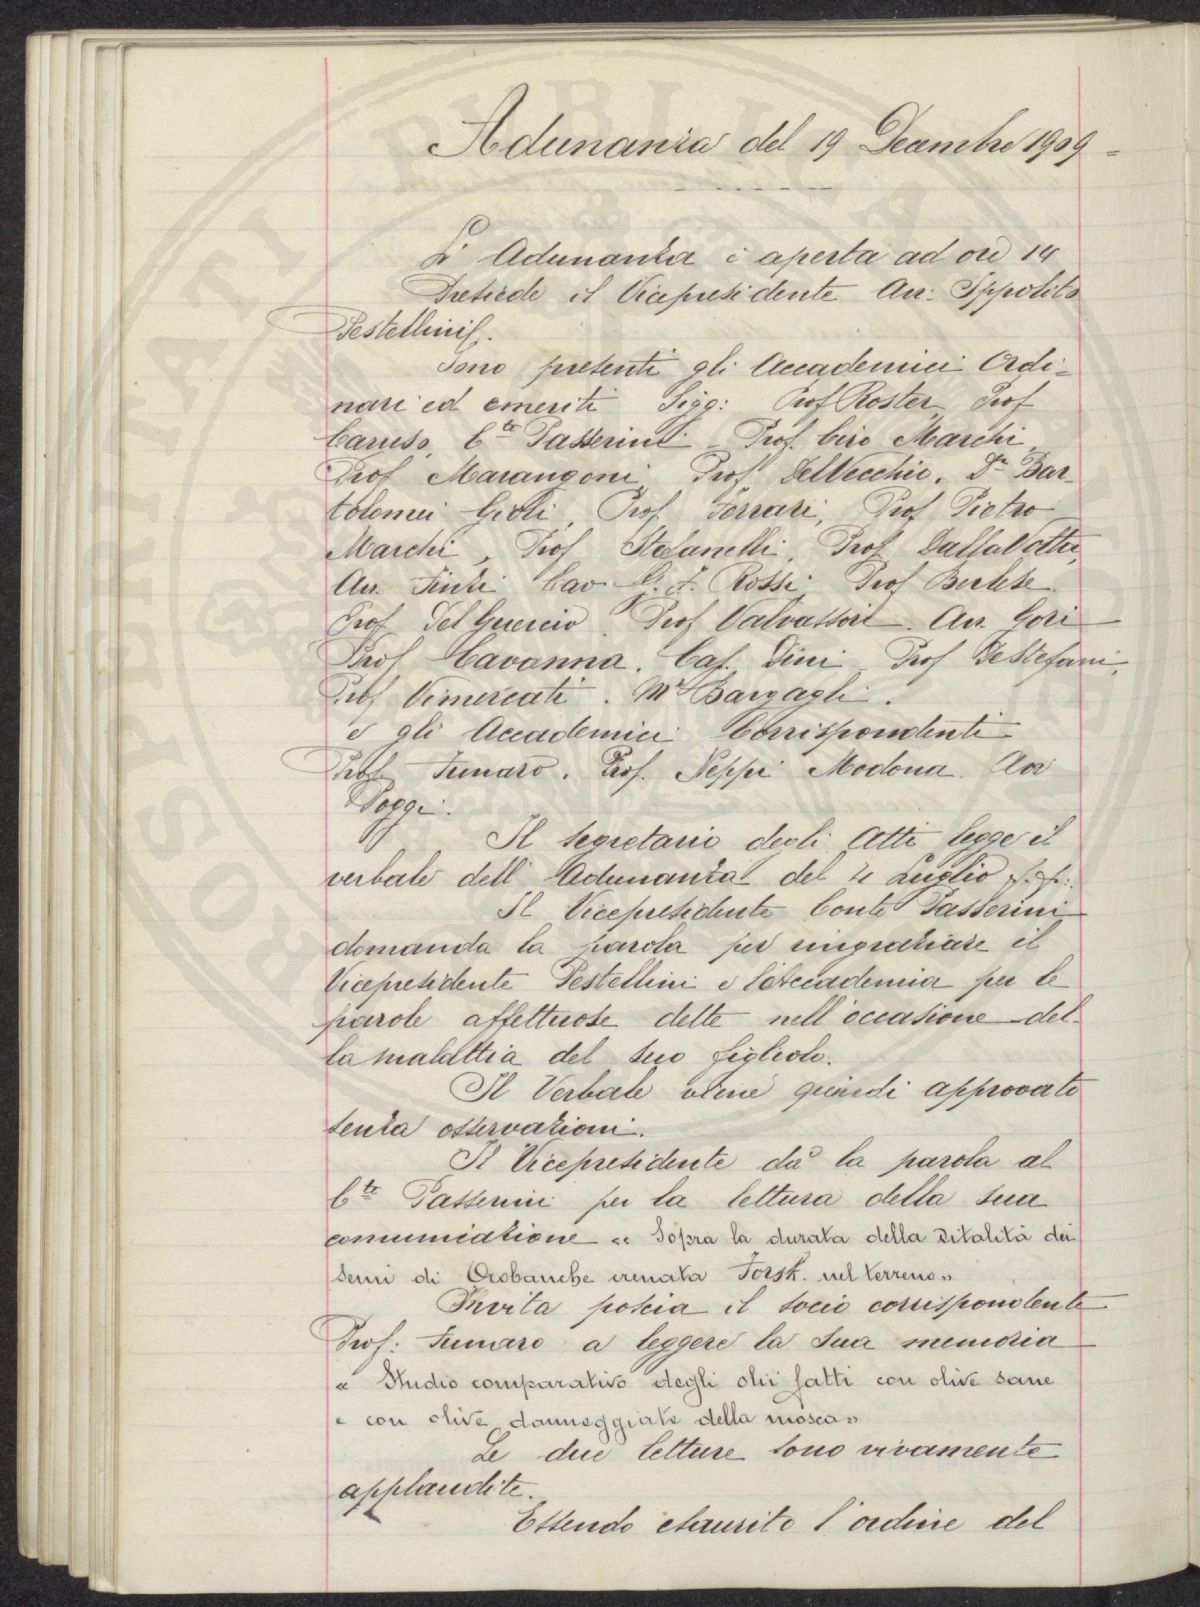 Adunanza del 19 Decembre 1909 =
L' Adunanza è aperta ad ore 14
Presiede il Vicepresidente Avv: Ippolito
Pestellini.
Sono presenti gli Accademici Ordi=
nari ed emeriti Sigg: Prof Roster, Prof
Caruso, Cte Passerini - Prof. Ciro Marchi,
Prof Marangoni, Prof DelVecchio, Dr Bar_
tolomei Gioli, Prof. Ferrari, Prof Pietro
Marchi, Prof Stefanelli, Prof DallaVolta,
Avv. Tinti Cav. G. F. Rossi, Prof Berlese
Prof Del Guercio, Prof Valvassori. Avv. Gori
Prof Cavanna, Caf. Dini, Prof DeStefani,
Prof Vimercati. Mse Bargagli.
e gli Accademici Corrispondenti
Prof Funaro. Prof. Neppi Modona. Avv
Poggi.
Il segretario degli Atti legge il
verbale dell' Adunanza del 4 Luglio p.p.:
Il Vicepresidente Conte Passerini
domanda la parola per ringraziare il
Vicepresidente Pestellini e l'Accademia per le
parole affettuose dette nell'occasione del-
la malattia del suo figliolo.
Il Verbale viene quindi approvato
senza osservazioni.
Il Vicepresidente dà la parola al
Cte Passerini per la lettura della sua
comunicazione « Sopra la durata della vitalità dei
semi di Orobanche crenata Forsk. nel terreno»
Invita poscia il socio corrispondente
Prof: Funaro a leggere la sua memoria
« Studio comparativo degli olii fatti con olive sane
e con olive danneggiate della mosca»
Le due letture sono vivamente
applaudite.
Essendo esaurito l'ordine del
PIBLICA